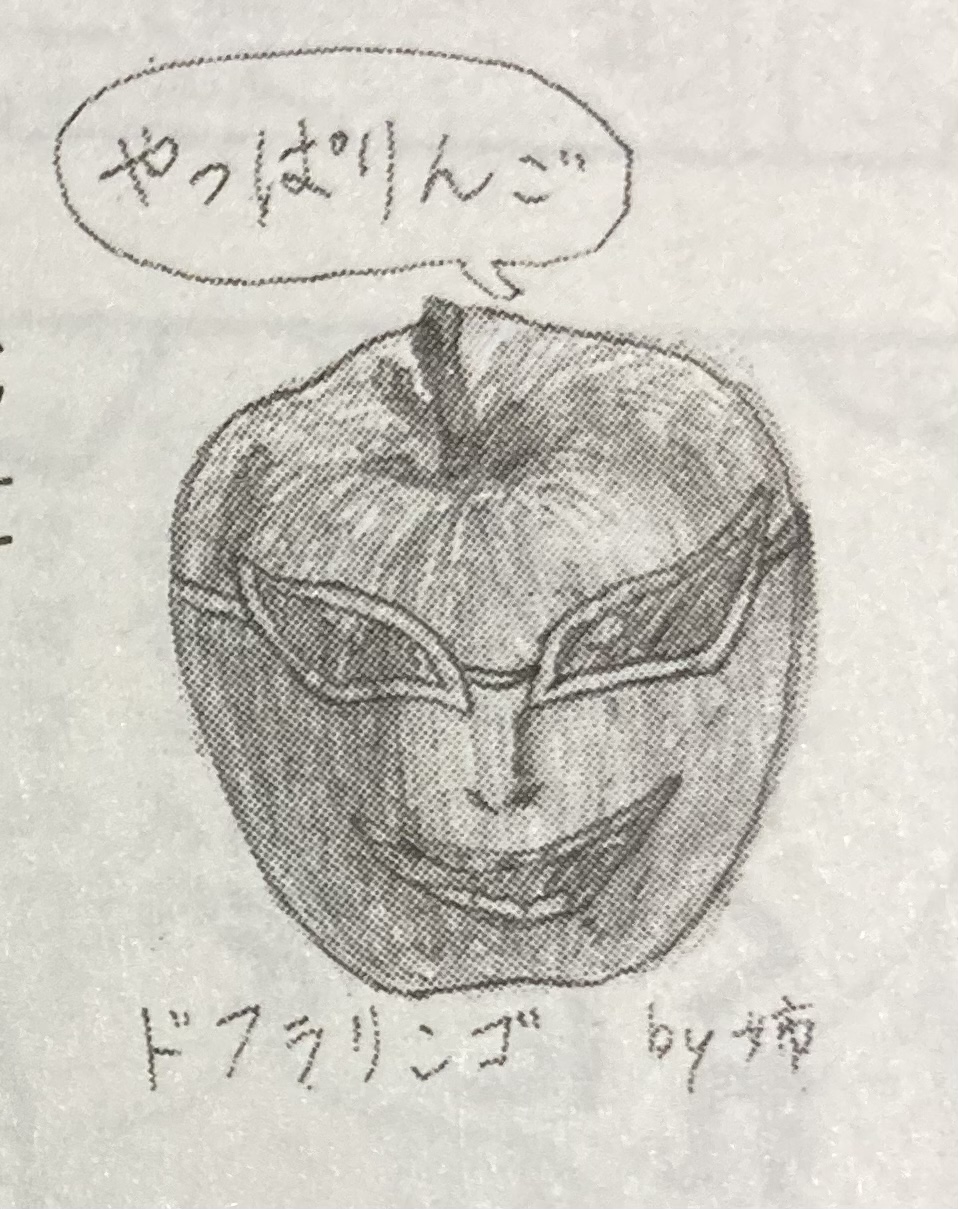 やっぱりんご
ドフラリンゴ by 姉